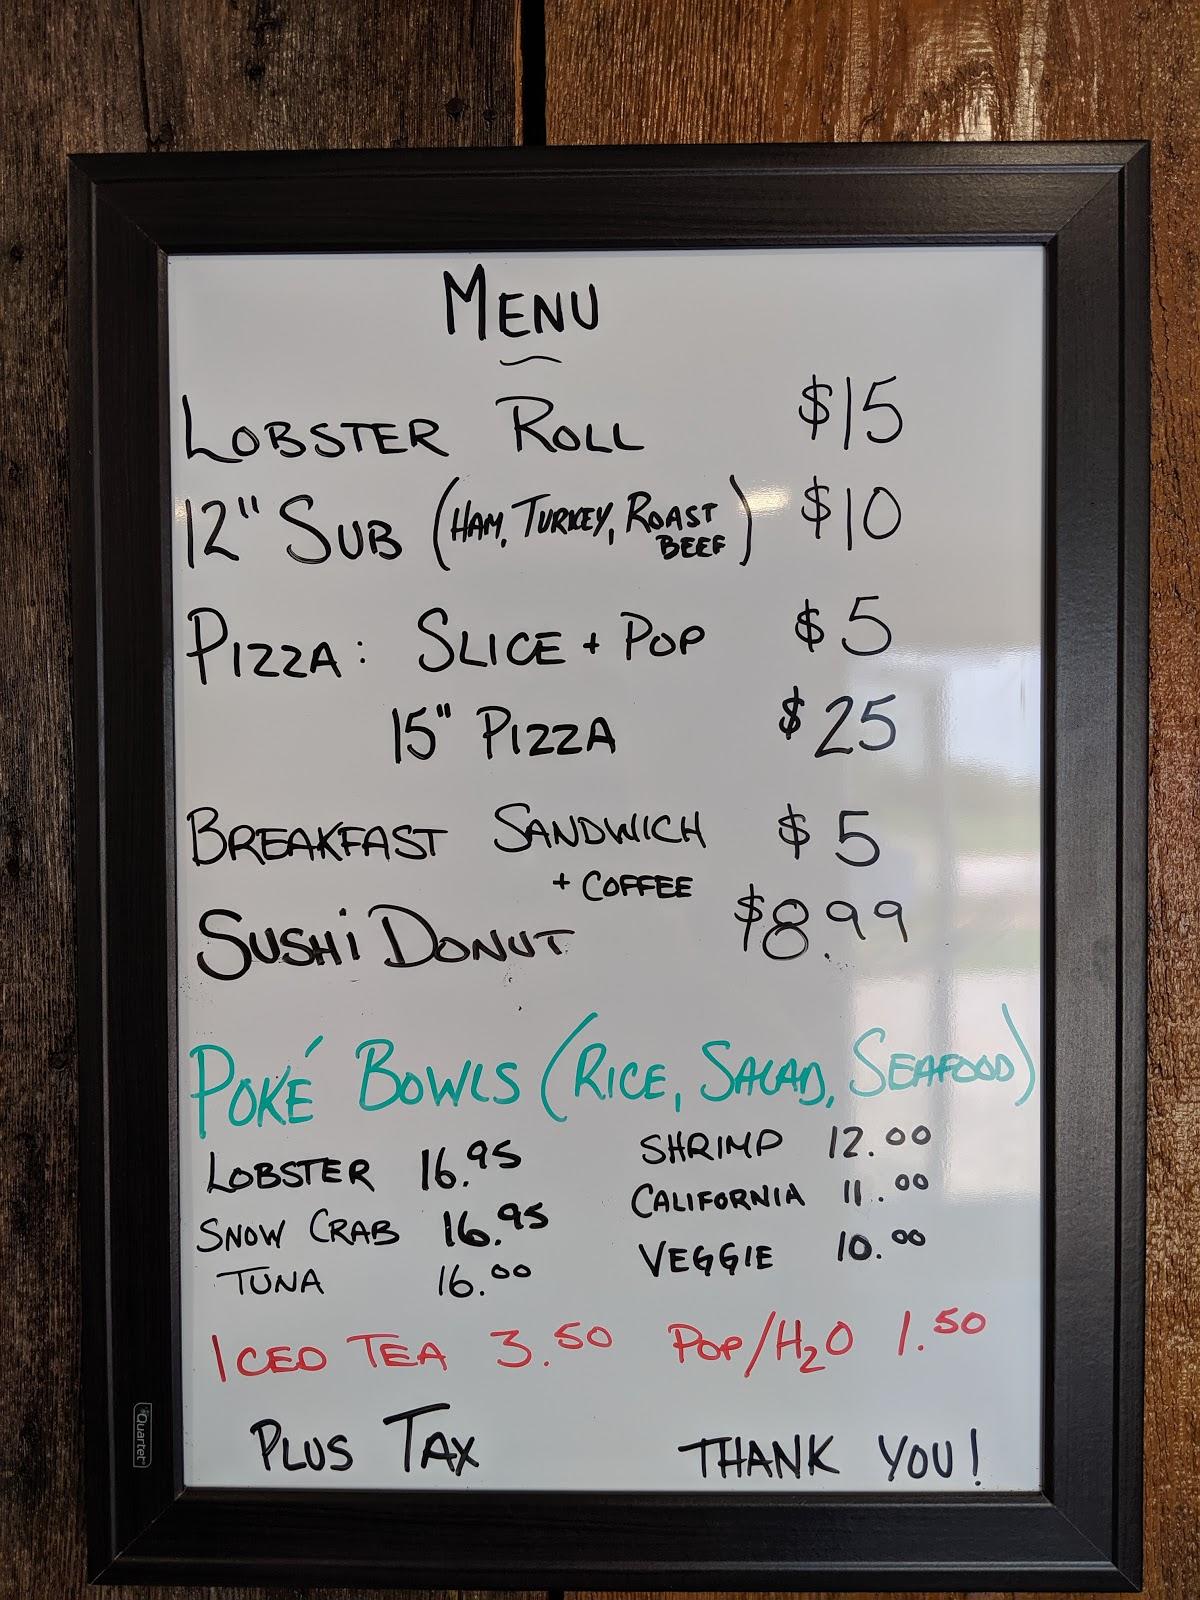 MENU
LOBSTER ROLL $15
12" SUB (HAM, TURKEY, ROAST BEEF) $10
PIZZA: SLICE + POP $5
15" PIZZA $25
BREAKFAST SANDWICH $5
+ COFFEE
SUSHI DONUT $8.99
POKÉ BOWLS (RICE, SALAD, SEAFOOD)
LOBSTER 16.95 SHRIMP 12.00
SNOW CRAB 16.95 CALIFORNIA 11.00
TUNA 16.00 VEGGIE 10.00
ICED TEA 3.50 POP/H₂O 1.50
PLUS TAX THANK YOU!
Quartet